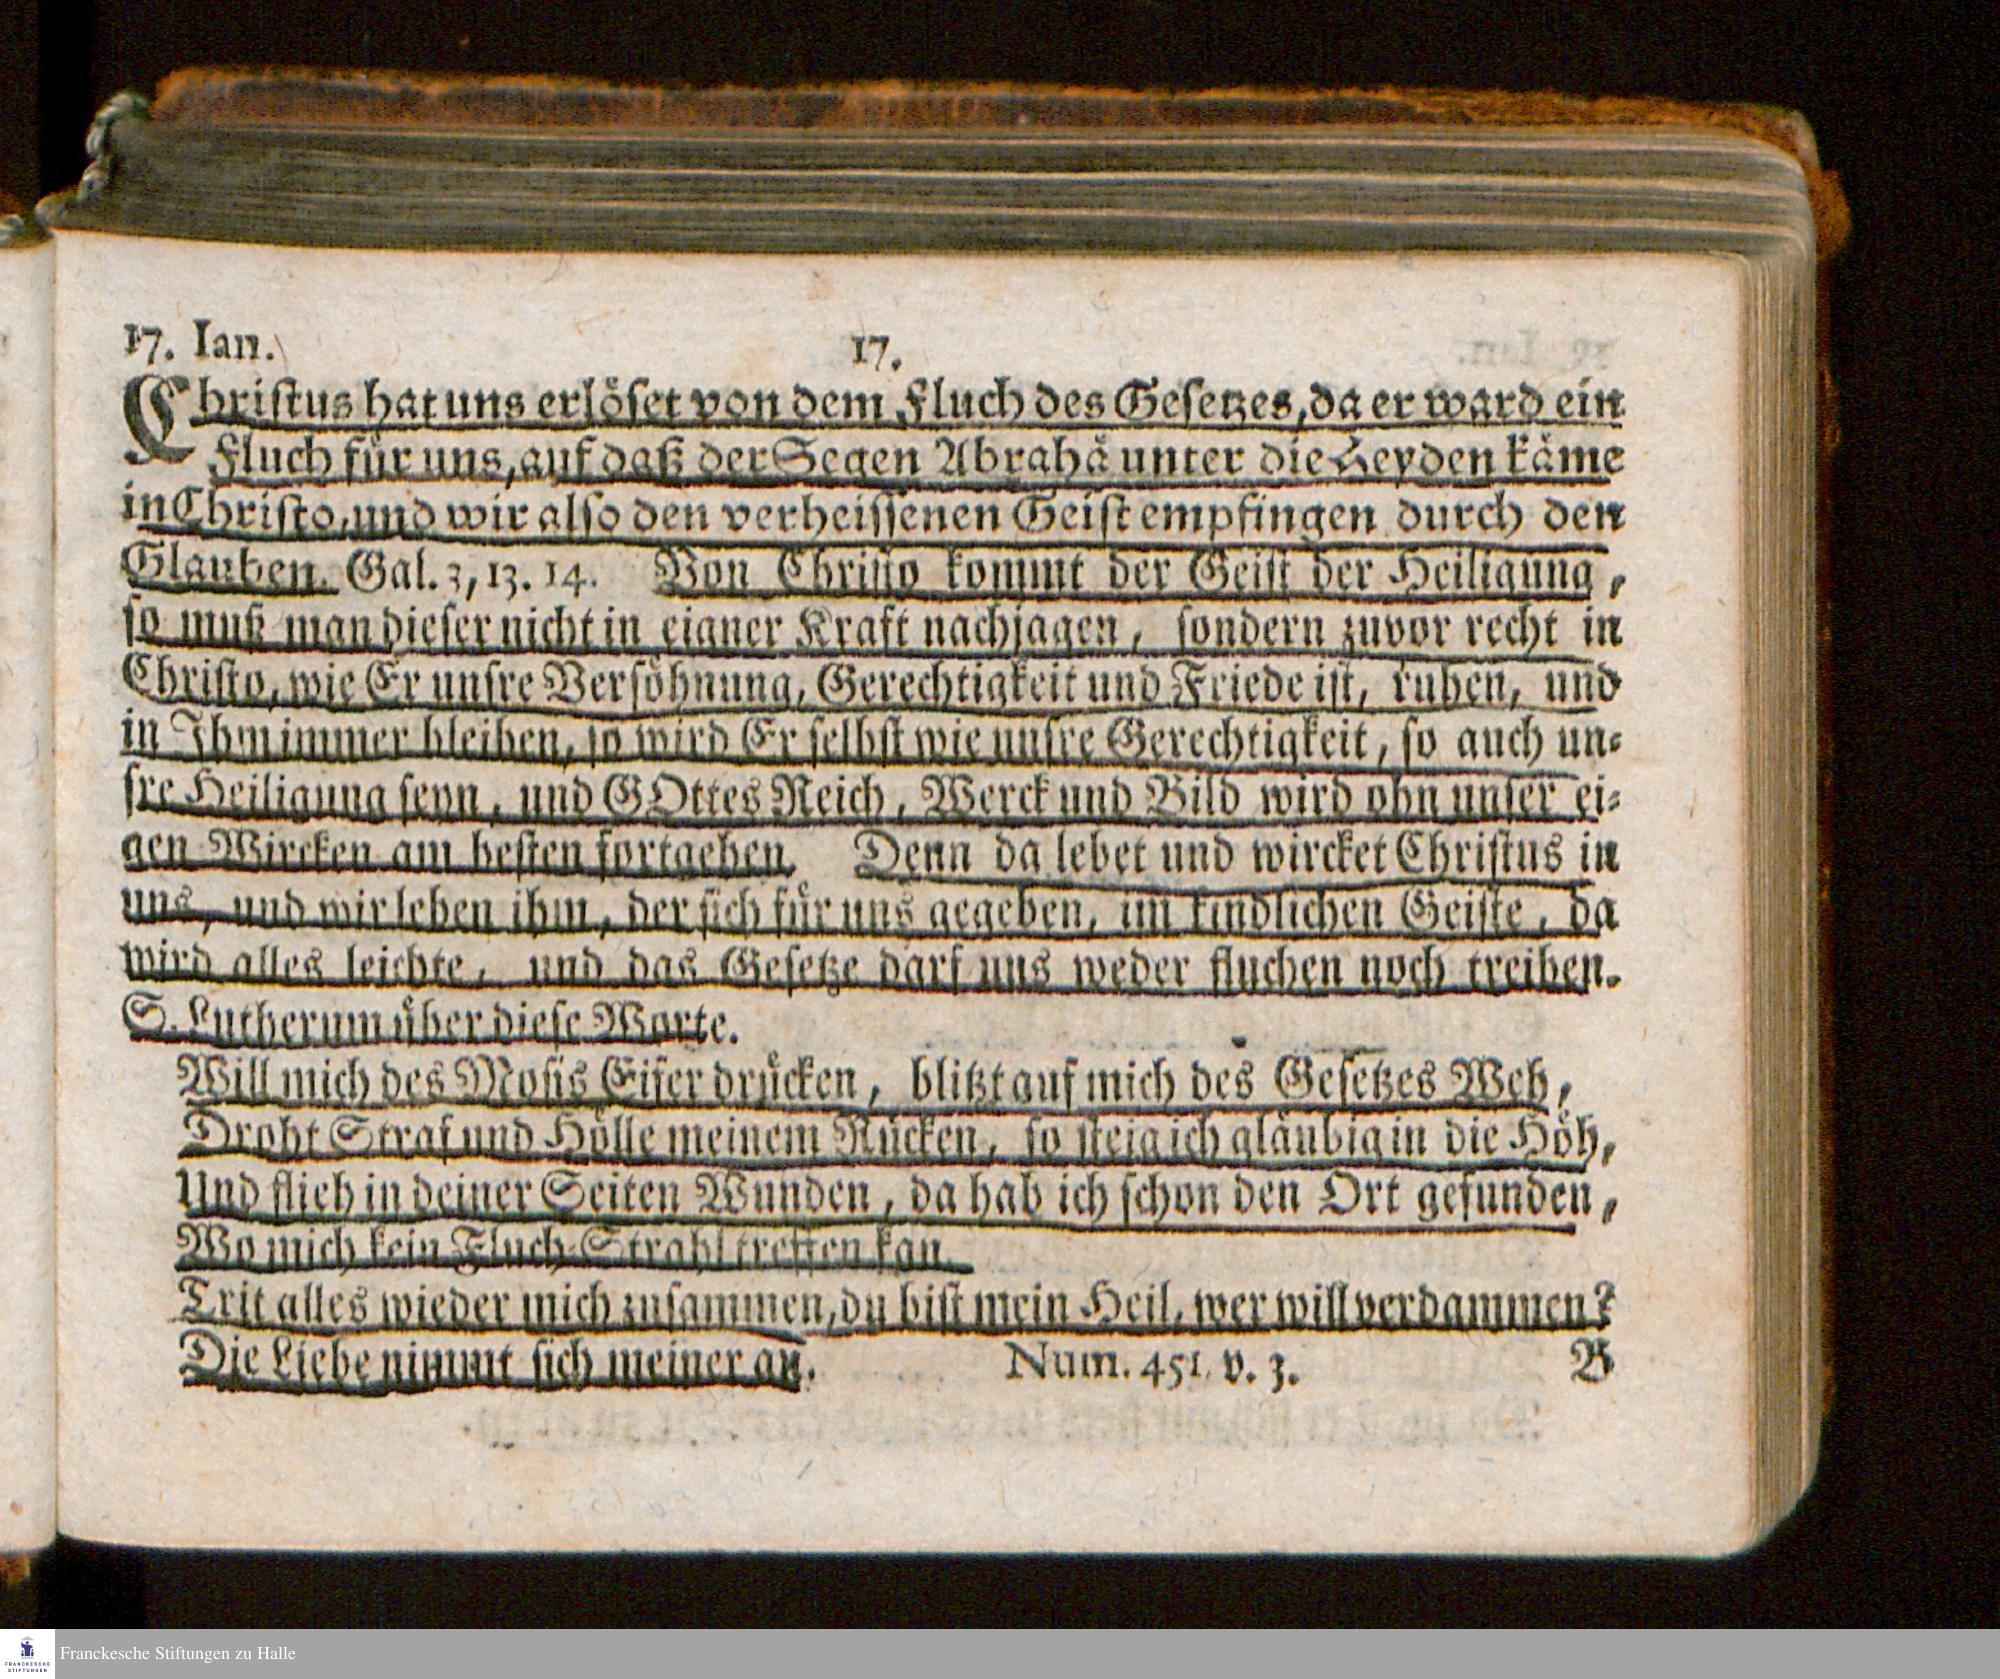 17. Ian.
17.
Christus hat uns erlöset von dem Fluch des Gesetzes, da er ward ein
Fluch für uns, auf daß der Segen Abrahä unter die Heyden käme
in Christo, und wir also den verheissenen Geist empfingen durch den
Glauben. Gal. 3, 13. 14. Von Christo kommt der Geist der Heiligung,
so muß man dieser nicht in eigner Kraft nachjagen, sondern zuvor recht in
Christo, wie Er unsre Versöhnung, Gerechtigkeit und Friede ist, ruhen, und
in Ihm immer bleiben, so wird Er selbst wie unsre Gerechtigkeit, so auch un-
sre Heiligung seyn, und GOttes Reich, Werck und Bild wird ohn unser ei-
gen Wircken am besten fortgehen. Denn da lebet und wircket Christus in
uns, und wir leben ihm, der sich für uns gegeben, im kindlichen Geiste, da
wird alles leichte, und das Gesetze darf uns weder fluchen noch treiben.
S. Lutherum über diese Worte.
Will mich des Mosis Eifer drücken, blitzt auf mich des Gesetzes Weh,
Droht Straf und Hölle meinem Rücken, so steig ich gläubig in die Höh,
Und flieh in deiner Seiten Wunden, da hab ich schon den Ort gefunden,
Wo mich kein Fluch-Strahl treffen kan.
Trit alles wieder mich zusammen, du bist mein Heil, wer will verdammen?
Die Liebe nimmt sich meiner an. Num. 451. v. 3. B
FRANCKESCHE
STIFTUNGEN
Franckesche Stiftungen zu Halle